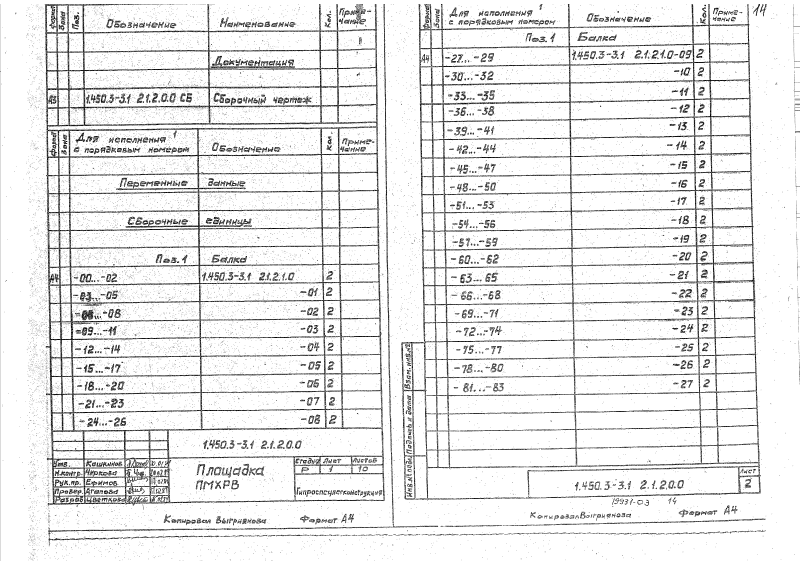 формат Зона Поз. Обозначение Наименование Кол. Приме-чание
Документация
А3 1.450.3-3.1 2.1.2.0.0 СБ Сборочный чертеж
формат Зона Для исполнения 1 с порядковым номером Обозначение Кол. Приме-чание
Переменные данные
Сборочные единицы
Поз.1 Балка
А4 -00...-02 1.450.3-3.1 2.1.2.1.0 2
-03...-05 -01 2
-06...-08 -02 2
-09...-11 -03 2
-12...-14 -04 2
-15...-17 -05 2
-18...-20 -06 2
-21...-23 -07 2
-24...-26 -08 2
1.450.3-3.1 2.1.2.0.0
Кашкинов
Н.контр. Чиркова
Рук.пр. Ефимов
Провер. Агапова
Разраб. Цветкова
Площадка
ПМХРВ
Стадия Лист Листов
Р 1 10
Копировал Выгриянова Формат А4
14
формат Зона Для исполнения 1 с порядковым номером Обозначение Кол. Приме-чание
Поз.1 Балка
А4 -27...-29 1.450.3-3.1 2.1.2.1.0-09 2
-30...-32 -10 2
-33...-35 -11 2
-36...-38 -12 2
-39...-41 -13 2
-42...-44 -14 2
-45...-47 -15 2
-48...-50 -16 2
-51...-53 -17 2
-54...-56 -18 2
-57...-59 -19 2
-60...-62 -20 2
-63...65 -21 2
-66...-68 -22 2
-69...-71 -23 2
-72...-74 -24 2
-75...-77 -25 2
-78...-80 -26 2
-81...-83 -27 2
Инв.№ подл. Подпись и дата Взам. инв.№
1.450.3-3.1 2.1.2.0.0
Лист
2
19931-03 14
Копировал Выгриянова Формат А4